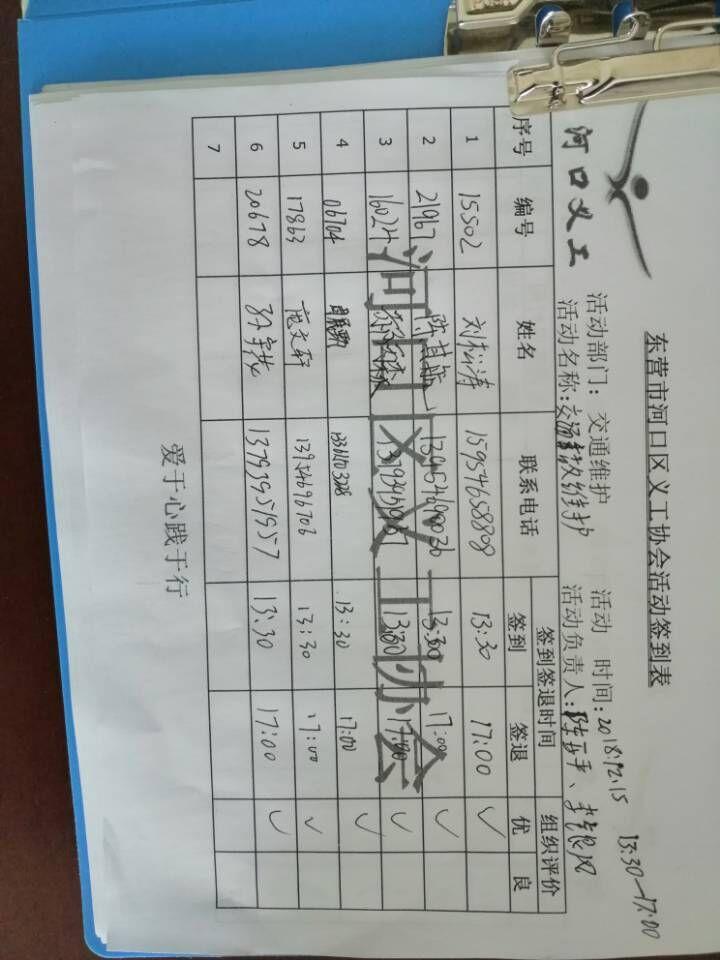 东营市河口区义工协会活动签到表
河口义工
活动部门：交通维护 活动 时间：2018.12.15 13:30—17:00
活动名称：交通 维护 活动负责人：
序号 编号 姓名 联系电话 签到签退时间 组织评价
签到 签退 优 良
1 15502 刘松涛 15954658808 13:30 17:00 ✓
2 21967 13:30 17:00 ✓
3 16024 13:30 17:00 ✓
4 06704 13:30 17:00 ✓
5 17863 范文轩 13954696706 13:30 17:00 ✓
6 20678 13793951957 13:30 17:00 ✓
7
河口区义工协会
爱于心践于行